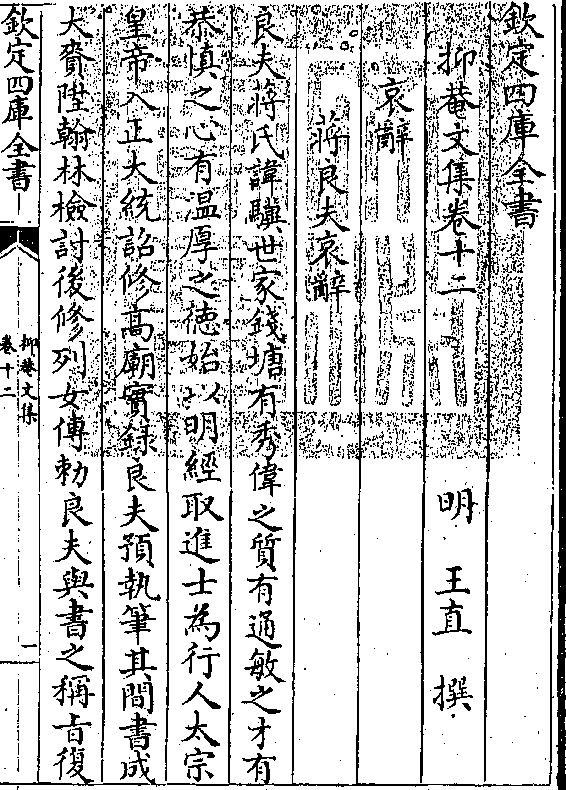 欽定四庫全書
抑菴文集卷十二
明 王直 撰
哀辭
蔣良夫哀辭
良夫蔣氏諱驥世家錢塘有秀偉之質有通敏之才有
恭慎之心有温厚之徳始以明經取進士為行人太宗
皇帝入正大統詔修髙廟實録良夫預執筆其間書成
大賚陞翰林檢討後修列女傳勅良夫與書之稱㫖復
欽定四庫全書
抑菴文集
卷十二
一